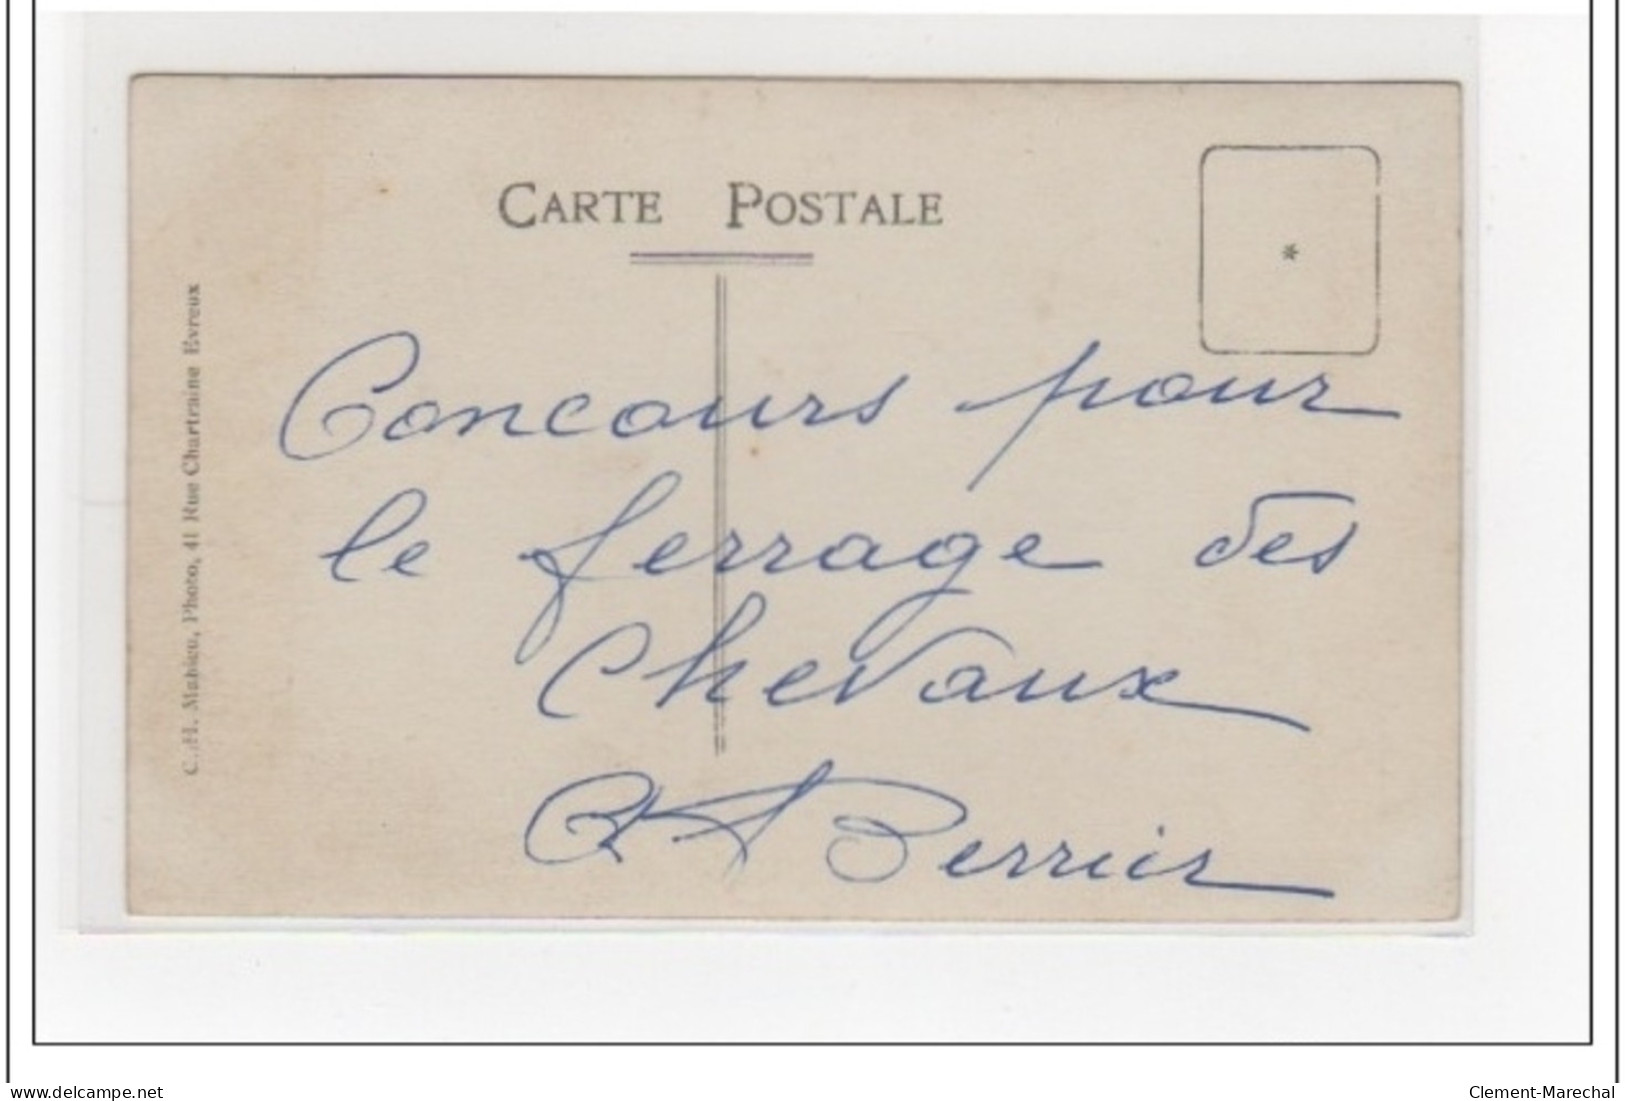 CARTE POSTALE
*
C.-H. Mahieu, Photo, 41 Rue Chartraine Evreux
Concours pour
le ferrage des
Chevaux
Berrier
www.delcampe.net
Clement-Marechal